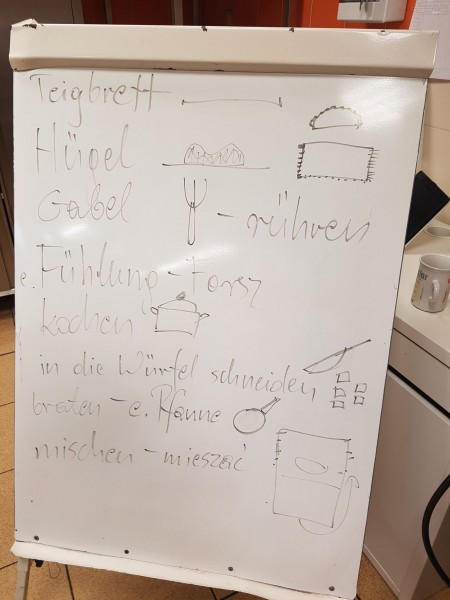 Teigbrett
Hügel
Gabel - rühren
e. Fühlung - Farsz
kochen
in die Würfel schneiden
braten - e. Pfanne
mischen - mieszać